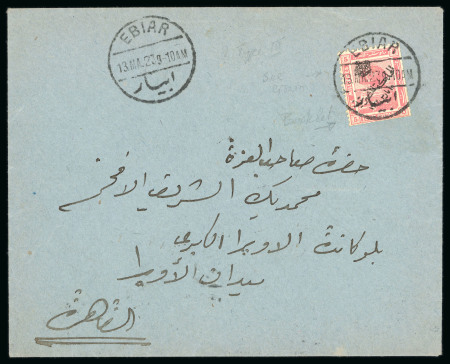 EBIAR
13.MA.23 9-10AM
ابيار
EBIAR
10AM
ابيار
حضرة صاحب العزة
محمد بك الشريف الافخم
بلوكاندة الاوبرا الكبرى
بميدان الأوبرا
القاهرة